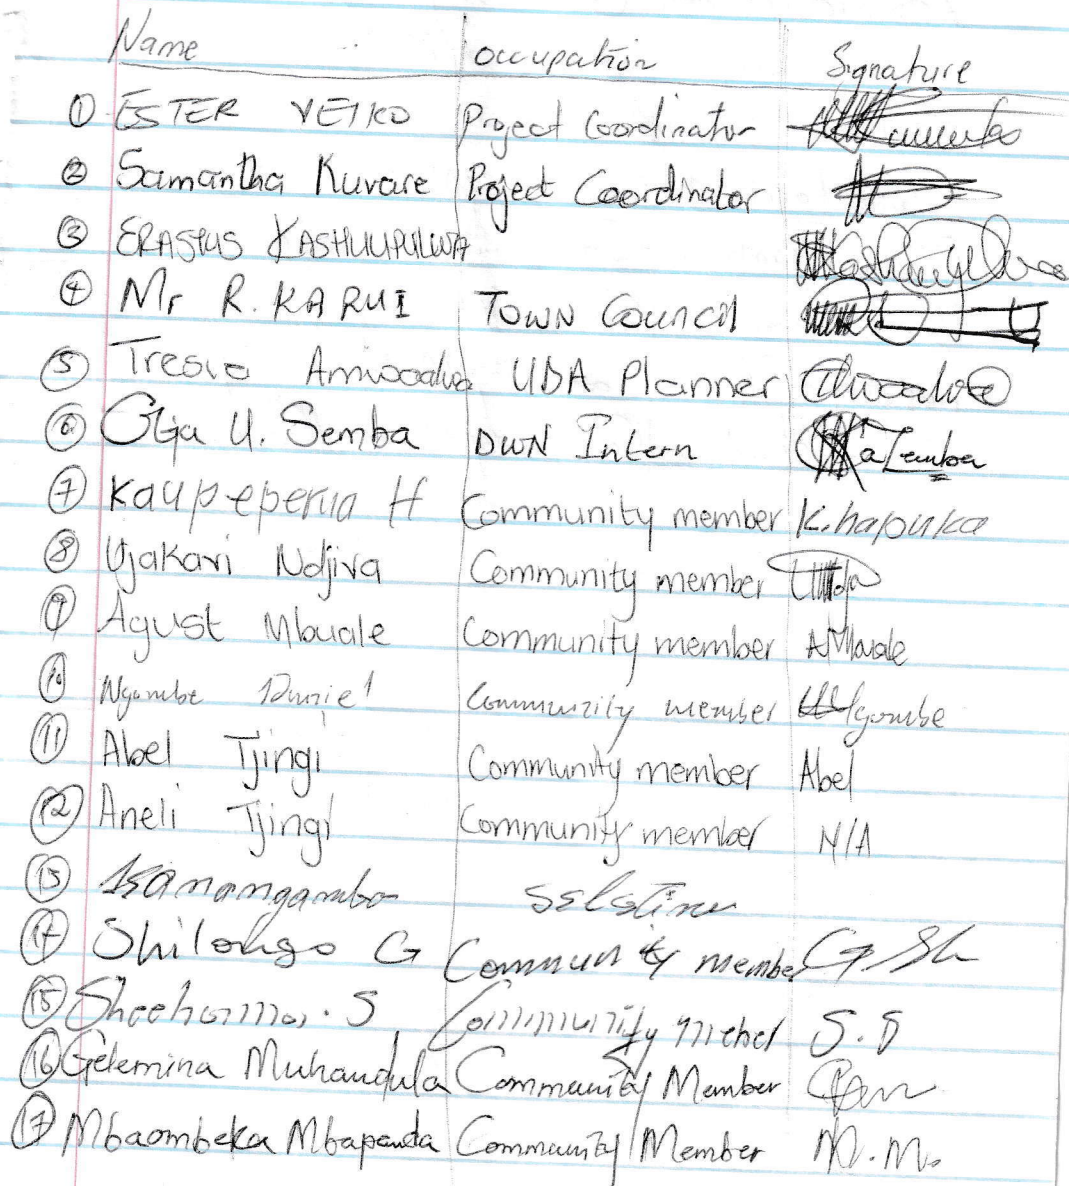 Name occupation Signature
① ESTER VEIKO Project Coordinator
② Samantha Kuvare Project Coordinator
③ ERASTUS KASHUUPULWA
④ Mr R. KARUI TOWN COUNCIL
⑤ Tresia Amwaalwa UDA Planner
⑥ Otja U. Semba DWN Intern
⑦ Kaupeperua H Community member K.hapurka
⑧ Ujakavi Ndjiva Community member
⑨ Agust Mbuale Community member A Mbuale
⑩ Ngombe Daniel Community member Ngombe
⑪ Abel Tjingi Community member Abel
⑫ Aneli Tjingi Community member N/A
⑬ Kanangambo Selstine
⑭ Shilongo G Community member G Sh
⑮ Sheehama. S Community mebel S.S
⑯ Gelemina Muhandula Community Member
⑰ Mbaombeka Mbapanda Community Member M.M.